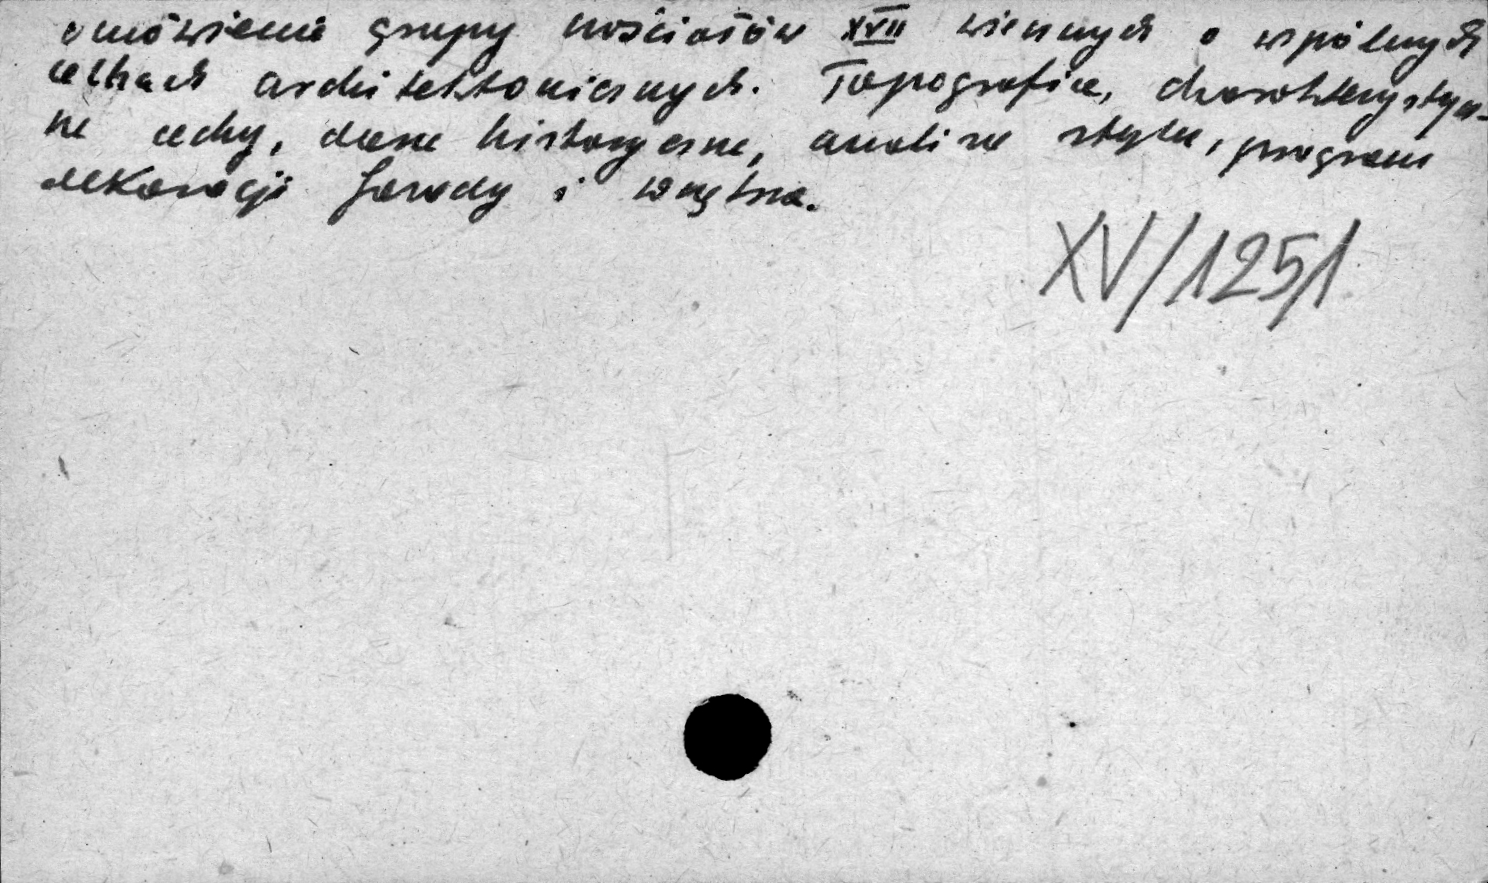 omówienie grupy kościołów XVII wiecznych o wspólnych
cechach architektonicznych. Topografia, charakterystycz-
ne cechy, dane historyczne, analiza stylu, program
dekoracji fasady i wnętrza.
XV/1251